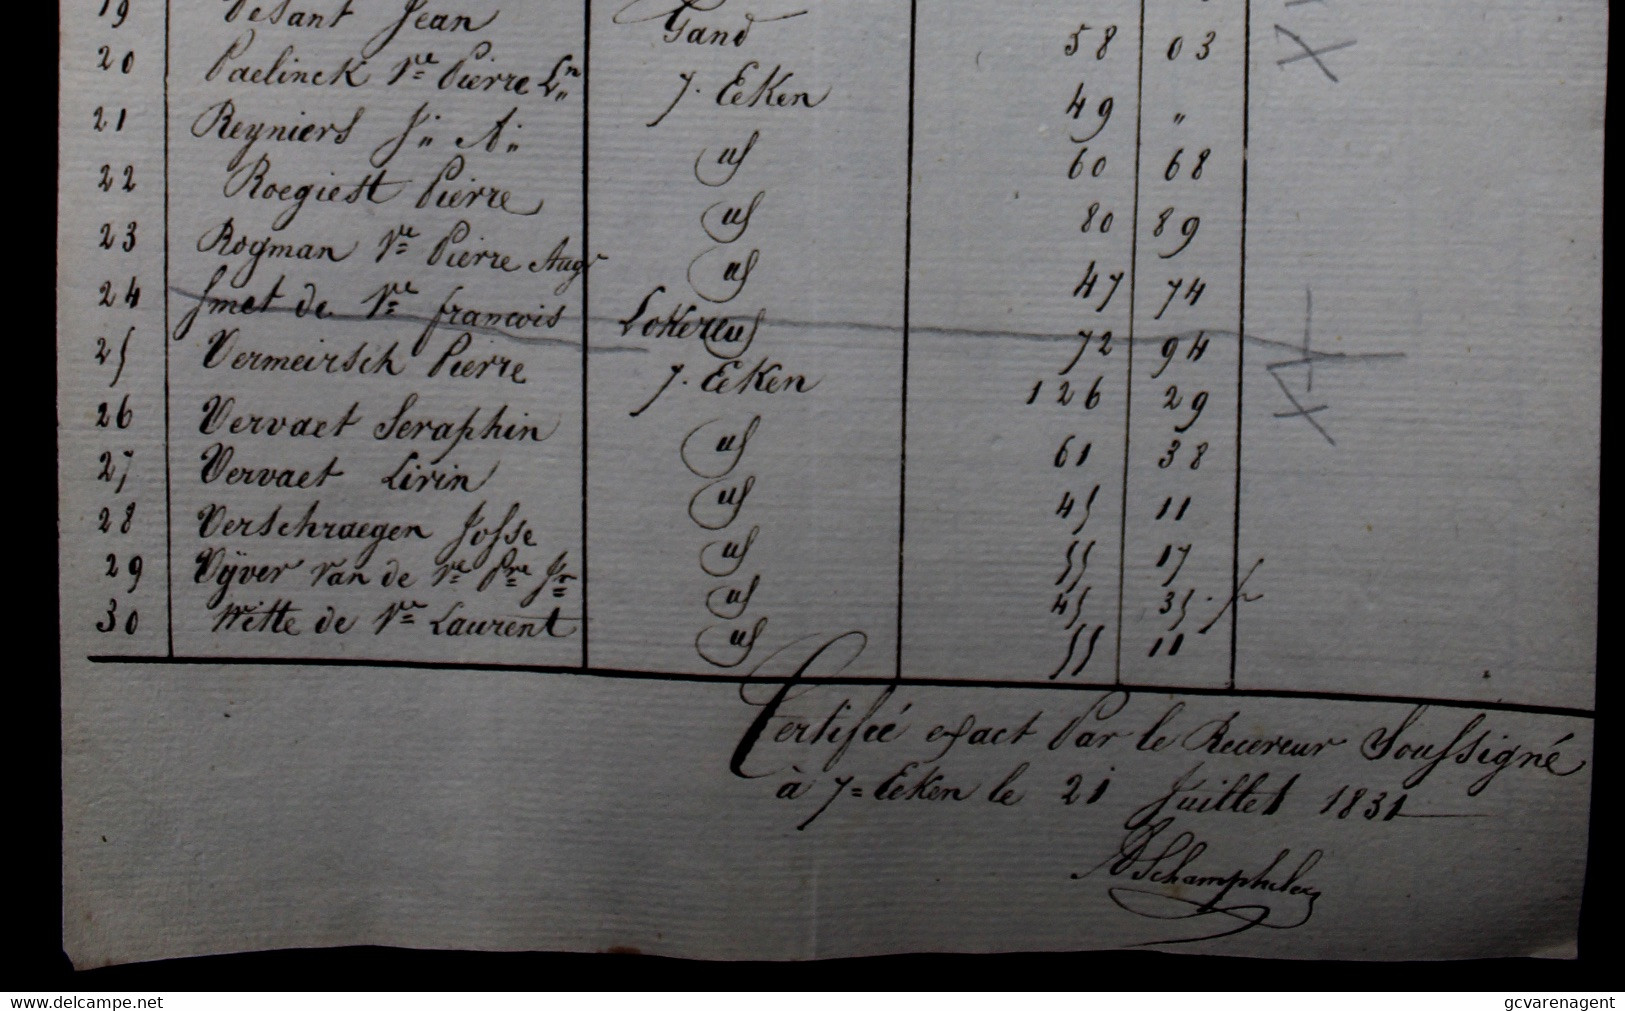 19 Desant Jean Gand 58 03
20 Paelinck Ve Pierre Ln 7. Eeken 49 "
21 Reyniers J" A" id 60 68
22 Roegiest Pierre id 80 89
23 Rogman Ve Pierre Augr id 47 74
24 Smet de Ve francois Lokeren 72 94
25 Vermeirsch Pierre 7. Eeken 126 29
26 Vervaet Seraphin id 61 38
27 Vervaet Livin id 45 11
28 Verschraegen Josse id 55 17
29 Vÿver van de Ve Pre Jn id 45 35
30 Witte de Ve Laurent id 55 11
Certifié exact Par le Receveur Soussigné
à 7= Eeken le 21 Juillet 1831
www.delcampe.net gcvarenagent